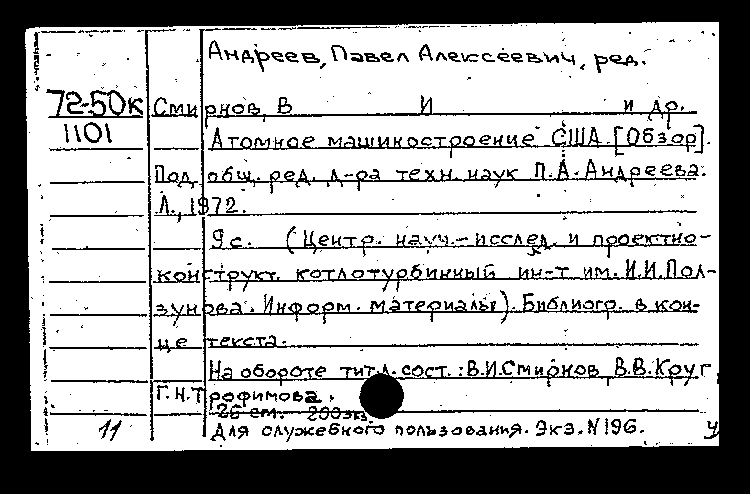 Андреев, Павел Алексеевич, ред.
72-50к Смирнов, В И и др.
1101 Атомное машиностроение США. [Обзор].
Под общ. ред. д-ра техн. наук П.А. Андреева.
Л., 1972.
9с. (Центр. науч.-исслед. и проектно-
конструкт. котлотурбинный ин-т им. И.И. Пол-
зунова. Информ. материалы). Библиогр. в кон-
це текста.
На обороте тит.л. сост.: В.И.Смирнов, В.В. Круг,
Г.Н.Трофимова.
26 см. 200экз
11 Для служебного пользования. Экз. N 196. у